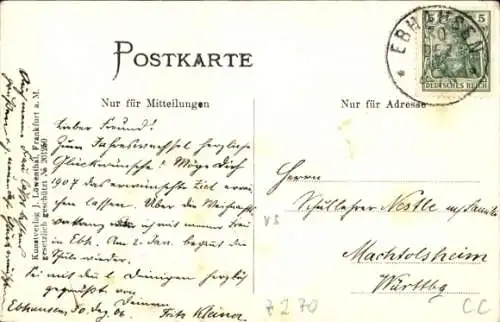 POSTKARTE
Nur für Mitteilungen
Lieber Freund!
Zum Jahreswechsel herzliche
Glückwünsche! Möge Dich
1907 das erwünschte Ziel errei-
chen lassen. Über die Weihnachts-
ich mit meiner Frau
in Ebh. Am 2. Jan. beginnt die
Schule wieder.
Sei mit den l. Deinigen herzlich
gegrüßt von
Deinem
Ebhausen 30. Dez. 06. Fritz Kleiner
Auch meine Frau läßt
Kunstverlag J. Löwenthal, Frankfurt a. M.
gesetzlich geschützt №
Nur für Adresse
EBHAUSEN
30
DEZ
5 5
DEUTSCHES REICH
Herrn
Schullehrer Nestle u. Familie
Machtolsheim
Württbg
7270
CC